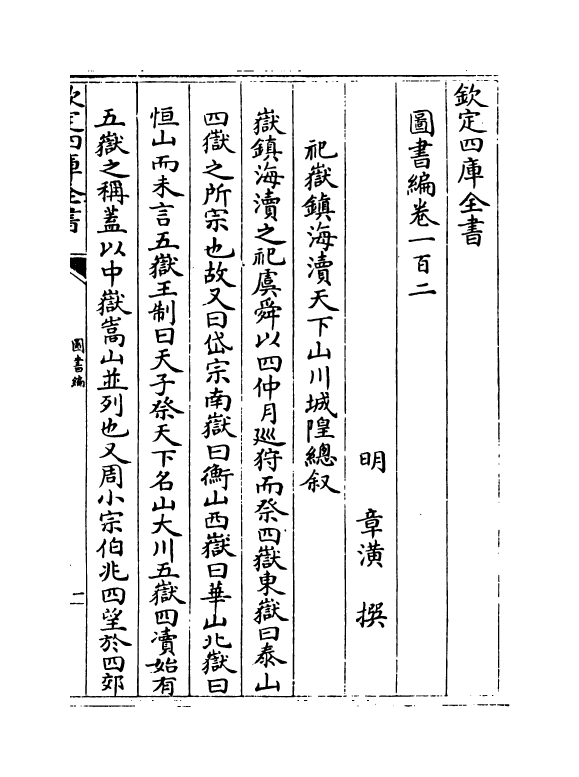 欽定四庫全書
圖書編卷一百二
明 章潢 撰
祀嶽鎮海瀆天下山川城隍總叙
嶽鎮海瀆之祀虞舜以四仲月廵狩而祭四嶽東嶽曰泰山
四嶽之所宗也故又曰岱宗南嶽曰衡山西嶽曰華山北嶽曰
恒山而未言五嶽王制曰天子祭天下名山大川五嶽四瀆始有
五嶽之稱蓋以中嶽嵩山並列也又周小宗伯兆四望於四郊
欽定四庫全書
圖書編
二